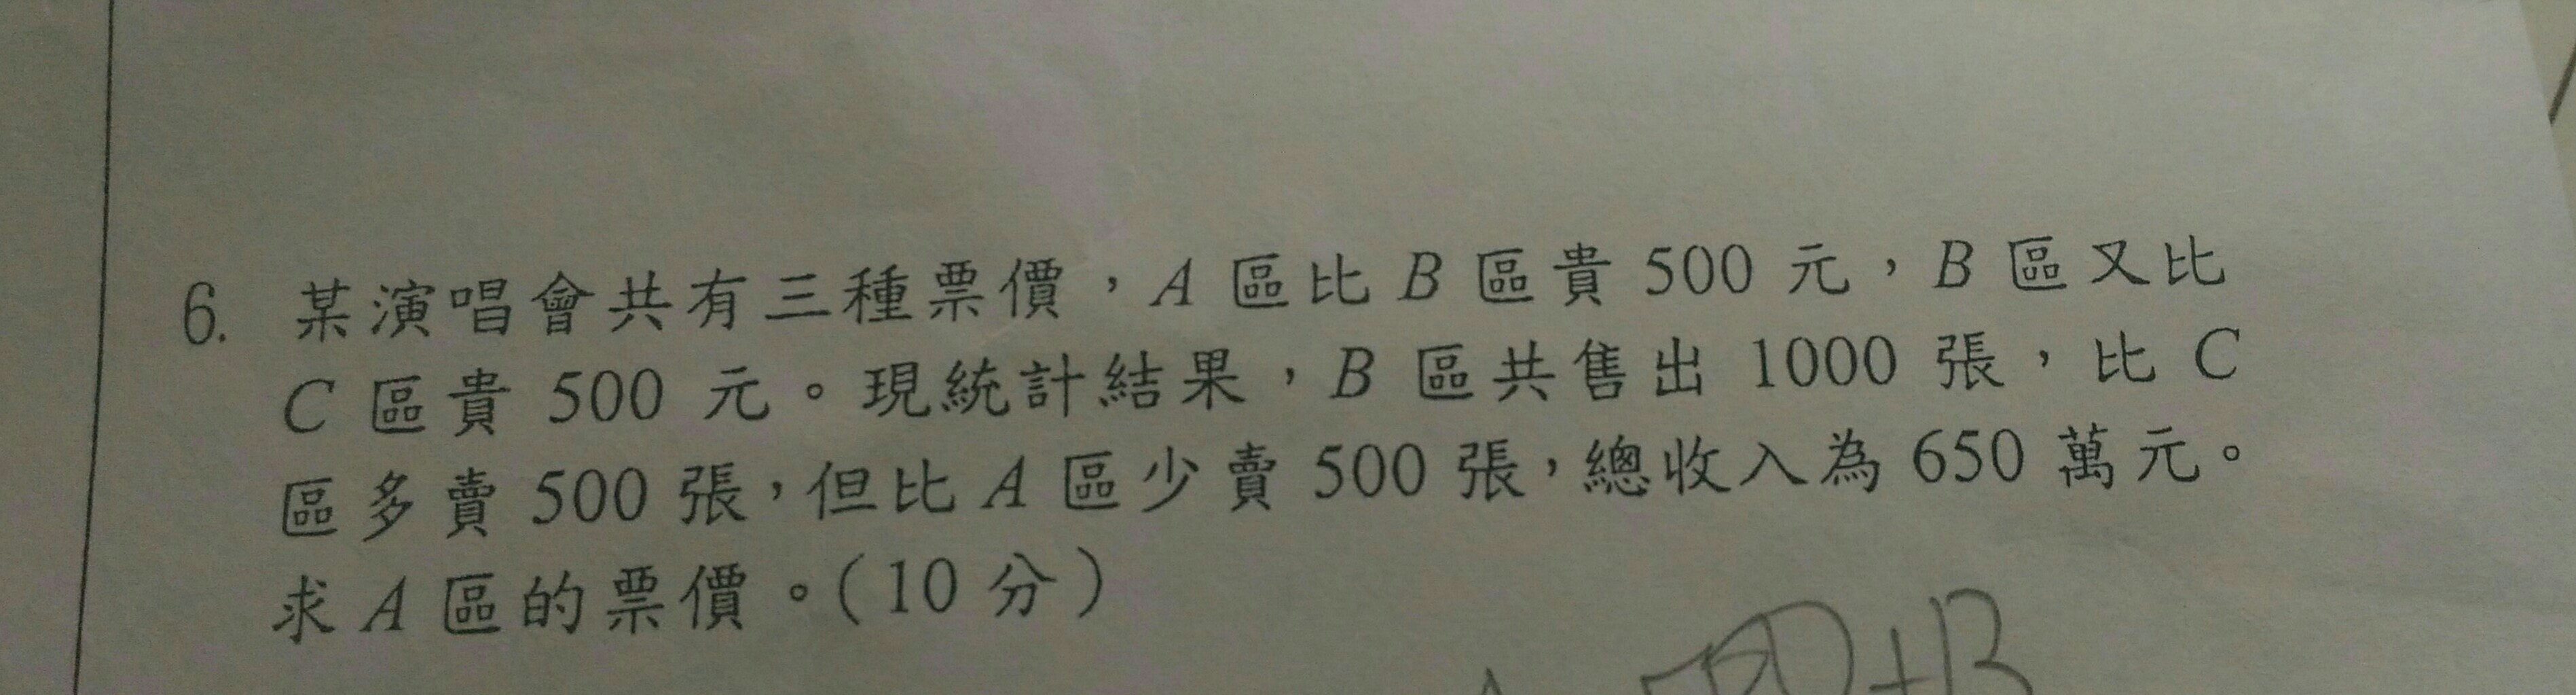 6. 某演唱會共有三種票價，A 區比 B 區貴 500 元，B 區又比
C 區貴 500 元。現統計結果，B 區共售出 1000 張，比 C
區多賣 500 張，但比 A 區少賣 500 張，總收入為 650 萬元。
求 A 區的票價。(10 分)